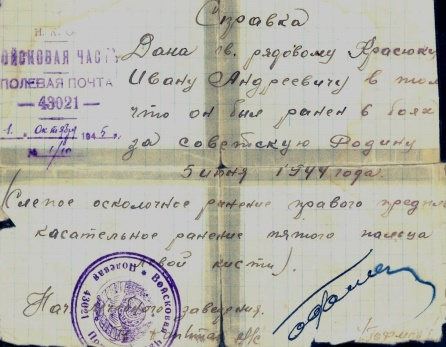 Справка
Н.К.О.
ВОЙСКОВАЯ ЧАСТЬ
ПОЛЕВАЯ ПОЧТА
— 43021 —
1. Октября 1945 г.
№ 1/10
Дана гв. рядовому Красюку
Ивану Андреевичу в том
что он был ранен в боях
за советскую Родину
5 июня 1944 года.
(Слепое осколочное ранение правого предпл
касательное ранение пятого пальца
вой кисти).
Полевая • Войсковая
43021